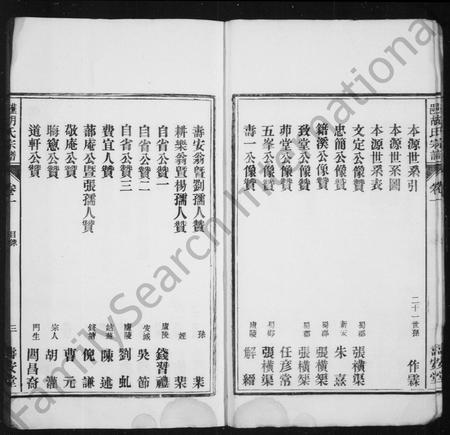 胡氏宗譜
卷一
壽安堂
本源世系引 二十一世孫 作霖
本源世系圖
本源世系表
文定公像贊 蜀郡 張橫渠
忠簡公像贊 新安 朱熹
籍溪公像贊 蜀郡 張橫渠
致堂公像贊 蜀郡 張橫渠
茆堂公像贊 任彥常
五峯公像贊 蜀郡 張橫渠
壽一公像贊 廬陵 解縉
壽安翁暨劉孺人贊 孫 業
耕樂翁暨楊孺人贊 姪 業
自省公贊一 廬陵 錢習禮
自省公贊二 安成 吳節
自省公贊三 廬陵 劉虬
費宜人贊 陳述
蕭庵公暨張孺人贊 錢塘 倪謙
敬庵公贊 曹元
晦意公贊 宗人 胡灌
道軒公贊 門生 周昌奇
胡氏宗譜
卷一
目錄
三
壽安堂
FamilySearch International